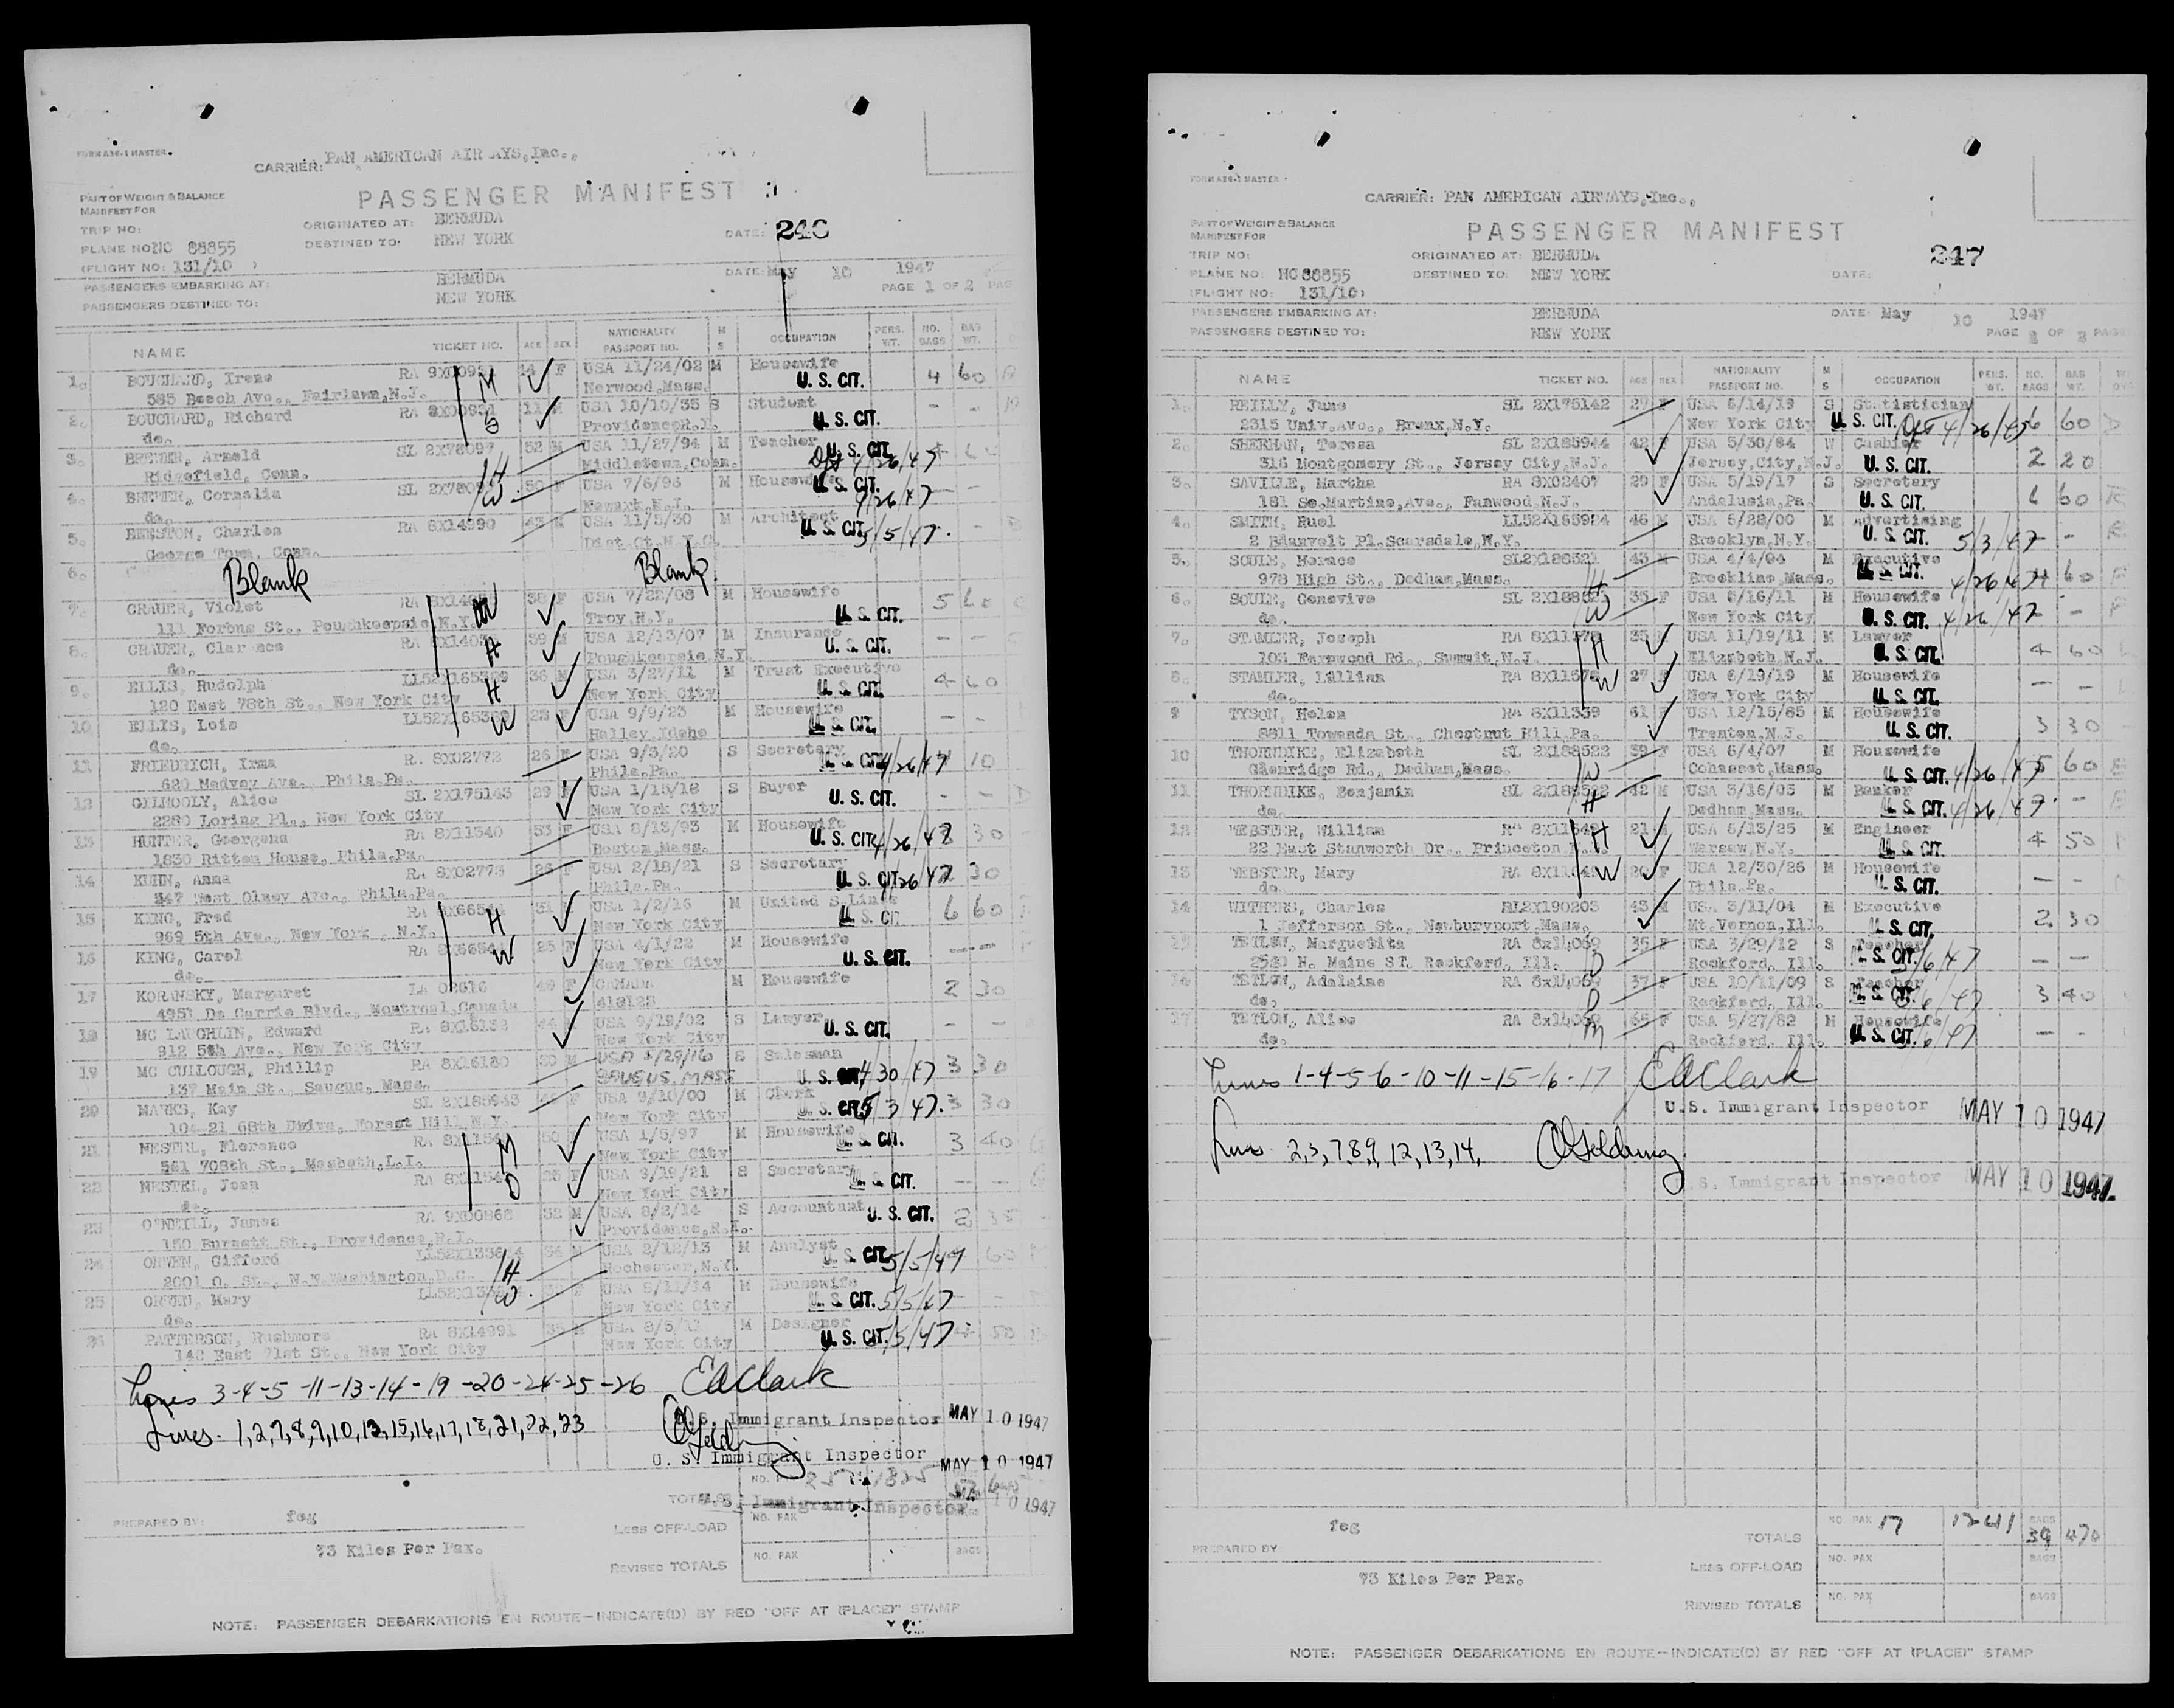 FORM A36-1 MASTER.
CARRIER: PAN AMERICAN AIRWAYS, Inc.,
PASSENGER MANIFEST
PART OF WEIGHT & BALANCE
MANIFEST FOR
TRIP NO:
PLANE NO: NC 88855
(FLIGHT NO: 131/10 )
ORIGINATED AT: BERMUDA
DESTINED TO: NEW YORK
DATE: 246
PASSENGERS EMBARKING AT: BERMUDA
PASSENGERS DESTINED TO: NEW YORK
DATE: May 10 1947
PAGE 1 OF 2
NAME TICKET NO. AGE SEX NATIONALITY PASSPORT NO. M S OCCUPATION PERS. WT. NO. BAGS BAG WT.
1. BOUCHARD, Irene RA 44 F USA 11/24/02 M Housewife 4 60
585 Beech Ave., Fairlawn,N.J. M Norwood,Mass. U. S. CIT.
2. BOUCHARD, Richard RA 11 M USA 10/10/35 S Student - -
do. Providence,R.I. U. S. CIT.
3. BREWER, Arnold SL 2X78097 52 M USA 11/27/94 M Teacher
Ridgefield, Conn. H Middletown,Conn. U. S. CIT. 4/26/47
4. BREWER, Cornelia SL 50 F USA 7/6/96 M Housewife
do. W Newark,N.J. U. S. CIT. 4/26/47
5. BEESTON, Charles RA 8X14990 43 M USA 11/5/30 M Architect
George Town, Conn. Dist.Ct.N.Y.C. U. S. CIT. 5/5/47.
6. Blank Blank
7. CRAUER, Violet RA 38 F USA 7/22/08 M Housewife 5 60
111 Forbus St., Poughkeepsie,N.Y. W Troy,N.Y. U. S. CIT.
8. CRAUER, Clarence RA 39 M USA 12/13/07 M Insurance - -
do. H Poughkeepsie,N.Y. U. S. CIT.
9. ELLIS, Rudolph 36 M USA 3/27/11 M Trust Executive 4 60
120 East 78th St., New York City H New York City U. S. CIT.
10 ELLIS, Lois 23 F USA 9/9/23 M Housewife - -
do. W Hailey,Idaho U. S. CIT.
11 FRIEDRICH, Irma RA 8X02772 26 F USA 9/3/20 S Secretary 10
620 Medvey Ave., Phila.Pa. Phila.Pa. 4/26/47
12 GILHOOLY, Alice SL 2X175143 29 F USA 1/15/18 S Buyer - -
2280 Loring Pl., New York City New York City U. S. CIT.
13 HUNTER, Georgena RA 8X11340 53 F USA 8/13/93 M Housewife 30
1830 Ritten House, Phila.Pa. Boston,Mass. U. S. CIT. 4/26/47
14 KUHN, Anna RA 8X02773 26 F USA 2/18/21 S Secretary 30
547 West Olney Ave., Phila.Pa. Phila.Pa. U. S. CIT. 4/26/47
15 KING, Fred RA 31 M USA 1/2/16 M United S.Lines 6 60
969 5th Ave., New York , N.Y. H New York City U. S. CIT.
16 KING, Carol RA 25 F USA 4/1/22 M Housewife
do. W New York City U. S. CIT.
17 KORANSKY, Margaret F CANADA M Housewife 2 30
4951 De Carrie Blvd., Montreal,Canada
18 MC LAUGHLIN, Edward RA 8X16132 44 USA 9/19/02 S Lawyer - -
912 5th Ave., New York City New York City U. S. CIT.
19 MC CULLOUGH, Phillip RA 8X16180 30 M S Salesman 3 30
137 Main St., Saugus, Mass. SAUGUS, MASS U. S. CIT. 4/30/47
20 MARKS, Kay SL 2X185943 F USA 9/10/00 M Clerk 3 30
104-21 68th Drive, Forest Hill,N.Y. New York City U. S. CIT. 5/3/47.
21 NESTEL, Florence RA 50 F USA 1/5/97 M Housewife 3 40
New York City U. S. CIT.
22 NESTEL, Joan RA 25 F USA 9/19/21 S Secretary - -
do. D New York City U. S. CIT.
23 O'NEILL, James RA 9X00868 32 M USA 8/2/14 S Accountant 2 35
150 Burnett St., Providence,R.I. Providence,R.I. U. S. CIT.
24 ORVEN, Gifford M USA 2/12/13 M Analyst 60
2001 O. St., N.W.Washington,D.C. H Rochester,N.Y. U. S. CIT. 5/5/47
25 ORVEN, Mary F USA 6/11/14 M Housewife
do. W New York City U. S. CIT. 5/5/47
26 PATTERSON, Rushmore RA 8X14991 M USA M Designer 50
142 East 71st St., New York City New York City U. S. CIT. 5/5/47
Lines 3-4-5-11-13-14-19-20-24-25-26 EdClark
U. S. Immigrant Inspector MAY 10 1947
Lines. 1,2,7,8,9,10,12,15,16,17,18,21,22,23
U. S. Immigrant Inspector MAY 10 1947
TOTALS
U. S. Immigrant Inspector 10 1947
PREPARED BY: feg
NO. PAX
LESS OFF-LOAD
73 Kilos Per Pax.
NO. PAX BAGS
REVISED TOTALS
NOTE: PASSENGER DEBARKATIONS EN ROUTE—INDICATE(D) BY RED "OFF AT (PLACE)" STAMP
FORM A36-1 MASTER
CARRIER: PAN AMERICAN AIRWAYS, Inc.,
PASSENGER MANIFEST
PART OF WEIGHT & BALANCE
MANIFEST FOR
TRIP NO:
PLANE NO: NC 88855
(FLIGHT NO: 131/10)
ORIGINATED AT: BERMUDA
DESTINED TO: NEW YORK
DATE: 247
PASSENGERS EMBARKING AT: BERMUDA
PASSENGERS DESTINED TO: NEW YORK
DATE: May 10 1947
PAGE 2 OF 2
NAME TICKET NO. AGE SEX NATIONALITY PASSPORT NO. M S OCCUPATION PERS. WT. NO. BAGS BAG WT.
1. REILLY, June SL 2X175142 27 F USA 6/14/19 S Statistician 6 60
2315 Univ.Ave., Bronx,N.Y. New York City U. S. CIT. 4/26/47
2. SHERMAN, Teresa SL 2X185944 42 F USA 5/30/84 W Cashier 2 20
316 Montgomery St., Jersey City,N.J. Jersey,City,N.J. U. S. CIT.
3. SAVILLE, Martha RA 8X02407 29 F USA 5/19/17 S Secretary 6 60
181 So.Martine,Ave., Fanwood N.J. Andalusia,Pa. U. S. CIT.
4. SMITH, Ruel LL52X165924 46 M USA 6/28/00 M Advertising -
2 Blauvelt Pl.Scarsdale,N.Y. Brooklyn,N.Y. U. S. CIT. 5/3/47
5. SOULE, Horace SL2X188521 43 M USA 4/4/04 M Executive 60
978 High St., Dedham,Mass. H Brookline,Mass. U. S. CIT. 4/26/47
6. SOULE, Genevive SL 35 F USA 6/16/11 M Housewife -
do. W New York City U. S. CIT. 4/26/47
7. STAMLER, Joseph RA 35 M USA 11/19/11 M Lawyer 4 60
105 Fernwood Rd., Summit,N.J. H Elizabeth,N.J. U. S. CIT.
8. STAMLER, Lillian RA 27 F USA 6/19/19 M Housewife - -
do. W New York City U. S. CIT.
9 TYSON, Helen RA 8X11339 61 F USA 12/15/85 M Housewife 3 30
8811 Towanda St., Chestnut Hill,Pa. Trenton,N.J. U. S. CIT.
10 THORNDIKE, Elizabeth SL 2X188522 39 F USA 6/4/07 M Housewife 5 60
Glenridge Rd., Dedham,Mass. W Cohasset,Mass. U. S. CIT. 4/26/47
11 THORNDIKE, Benjamin SL 42 M USA 3/16/05 M Banker -
do. H Dedham,Mass. U. S. CIT. 4/26/47.
12 WEBSTER, William RA 21 M USA 6/13/25 M Engineer 4 50
22 East Stanworth Dr., Princeton,N.J. H Warsaw,N.Y. U. S. CIT.
13 WEBSTER, Mary RA F USA 12/30/26 M Housewife - -
do. W Phila.Pa. U. S. CIT.
14 WITHERS, Charles RL2X190203 43 M USA 3/11/04 M Executive 2 30
1 Jefferson St., Newburyport,Mass. Mt.Vernon,Ill. U. S. CIT.
15 TETLOW, Marguebita RA 8x14069 35 F USA 3/29/12 S Teacher - -
2520 N. Maine ST. Rockford, Ill. D Rockford, Ill. U. S. CIT. 5/6/47
16 TETLOW, Adelaine RA 8x14069 37 F USA 10/11/09 S Teacher 3 40
do. D Rockford, Ill. U. S. CIT. 5/6/47
17 TETLOW, Alice RA 8x14069 65 F USA 5/27/82 M Housewife - -
do. M Rockford, Ill. U. S. CIT. 5/6/47
Lines 1-4-5-6-10-11-15-16-17 EdClark
U.S. Immigrant Inspector MAY 10 1947
Lines 2,3,7,8,9, 12,13,14,
U.S. Immigrant Inspector MAY 10 1947.
feg
PREPARED BY
TOTALS NO. PAX 17 1241 BAGS 39 470
LESS OFF-LOAD NO. PAX BAGS
73 Kilos Per Pax.
REVISED TOTALS NO. PAX BAGS
NOTE: PASSENGER DEBARKATIONS EN ROUTE—INDICATE(D) BY RED "OFF AT (PLACE)" STAMP